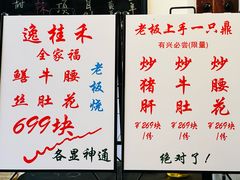 逸桂禾
全家福
鳝丝
牛肚
腰花
老板烧
699块
各显神通
老板上手一只鼎
有兴必尝(限量)
炒猪肝
¥269块/份
炒牛肚
¥269块/份
炒腰花
¥269块/份
绝对了!